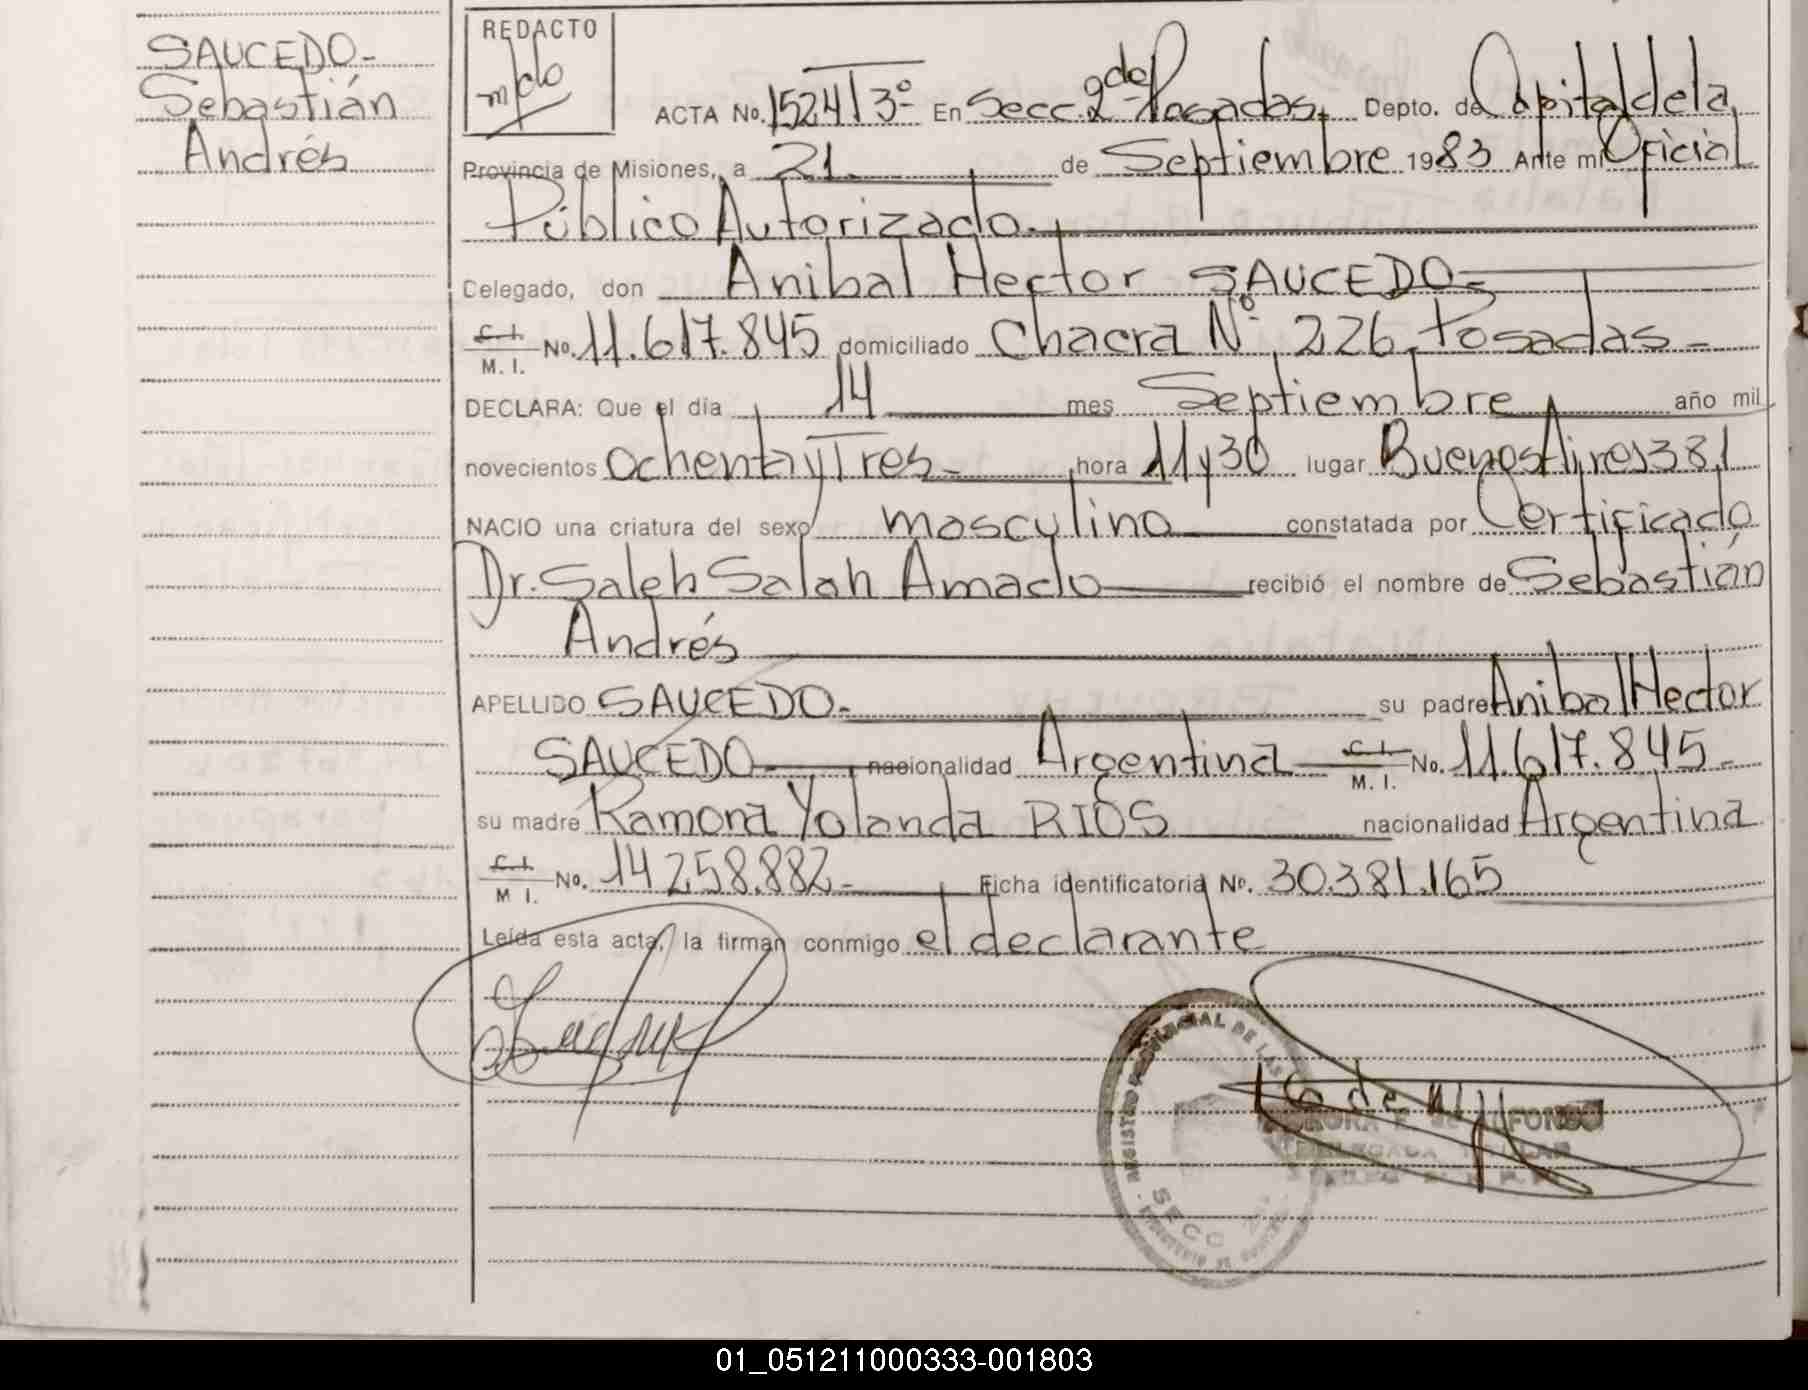 SAUCEDO-
Sebastián
Andrés
REDACTO
ACTA No. 1524 T 3º- En Secc. 2da- Posadas, Depto. de Capital de la
Provincia de Misiones, a 21 de Septiembre 1983 Ante mí Oficial
Público Autorizado.
Delegado, don Anibal Hector SAUCEDO-
C. I.
M. I. No. 11.617.845 domiciliado Chacra Nº 226, Posadas-
DECLARA: Que el día 14 mes Septiembre año mil
novecientos ochenta y Tres- hora 11 y 30 lugar Buenos Aires 381
NACIO una criatura del sexo masculino constatada por Certificado
Dr. Saleh Salah Amado recibió el nombre de Sebastián
Andrés
APELLIDO SAUCEDO- su padre Anibal Hector
SAUCEDO- nacionalidad Argentina C. I.
M. I. No. 11.617.845-
su madre Ramona Yolanda RIOS nacionalidad Argentina
C. I.
M I. No. 14.258.882- Ficha identificatoria No. 30.381.165
Leída esta acta, la firman conmigo el declarante
REGISTRO PROVINCIAL DE LAS
SECC
ALFONSO
DELEGADA TITULAR
01_051211000333-001803